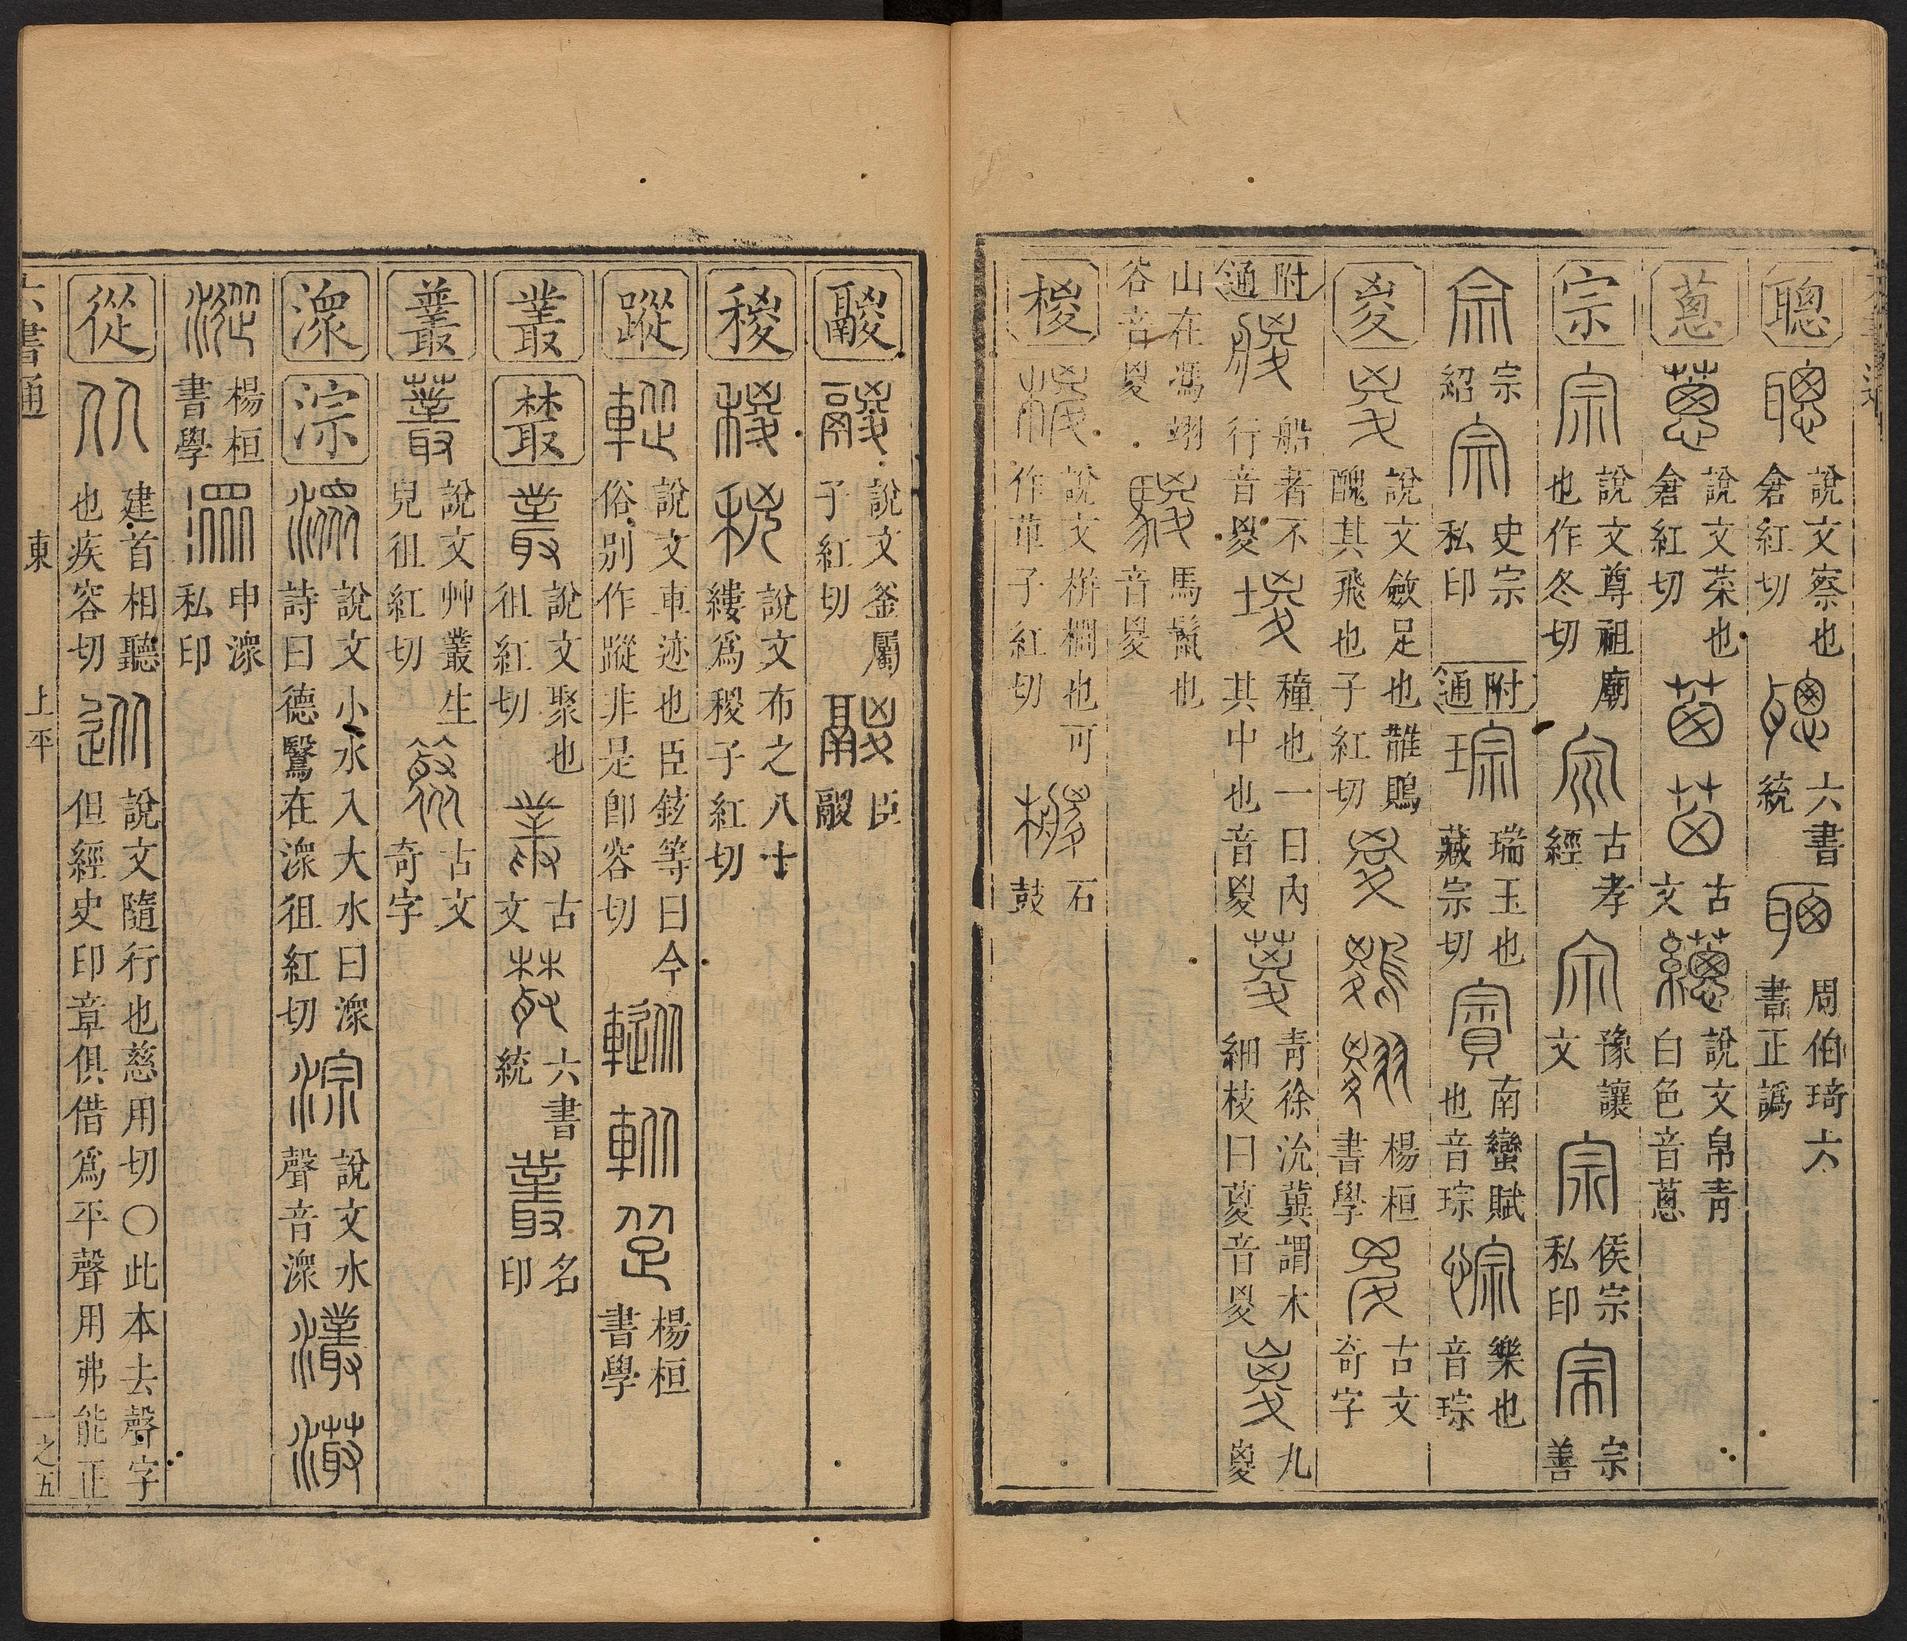 聰 說文察也倉紅切 六書統 周伯琦六書正譌
蔥 說文菜也倉紅切 古文 說文帛青白色音蔥
宗 說文尊祖廟也作冬切 古孝經 豫讓文 侯宗私印 宗善
宗紹 史宗私印 附通 瑞玉也藏宗切 南蠻賦也音琮 樂也音琮
㚇 說文斂足也鵲鵙醜其飛也㚇子紅切 楊桓書學 古文奇字
附通 船著不行音㚇 種也一曰內其中也音㚇 青徐沇冀謂木細枝曰葼音㚇 九嵏
山在馮翊谷音㚇 馬鬣也音㚇
椶 說文栟櫚也可作萆子紅切 石鼓
鬷 說文釜屬子紅切 臣鬷
稷 說文布之八十縷爲稷子紅切
蹤 說文車迹也臣鉉等曰今俗別作蹤非是卽容切 楊桓書學
叢 藂 說文聚也徂紅切 古文 六書統 名印
䕺 說文艸叢生皃徂紅切 古文奇字
潨 淙 說文小水入大水曰潨詩曰鳧鷖在潨徂紅切 說文水聲音潨
楊桓書學 申潨私印
從 建首相聽也疾容切 說文隨行也慈用切〇此本去聲字但經史印章俱借爲平聲用弗能正
六書通 東 上平 一之五